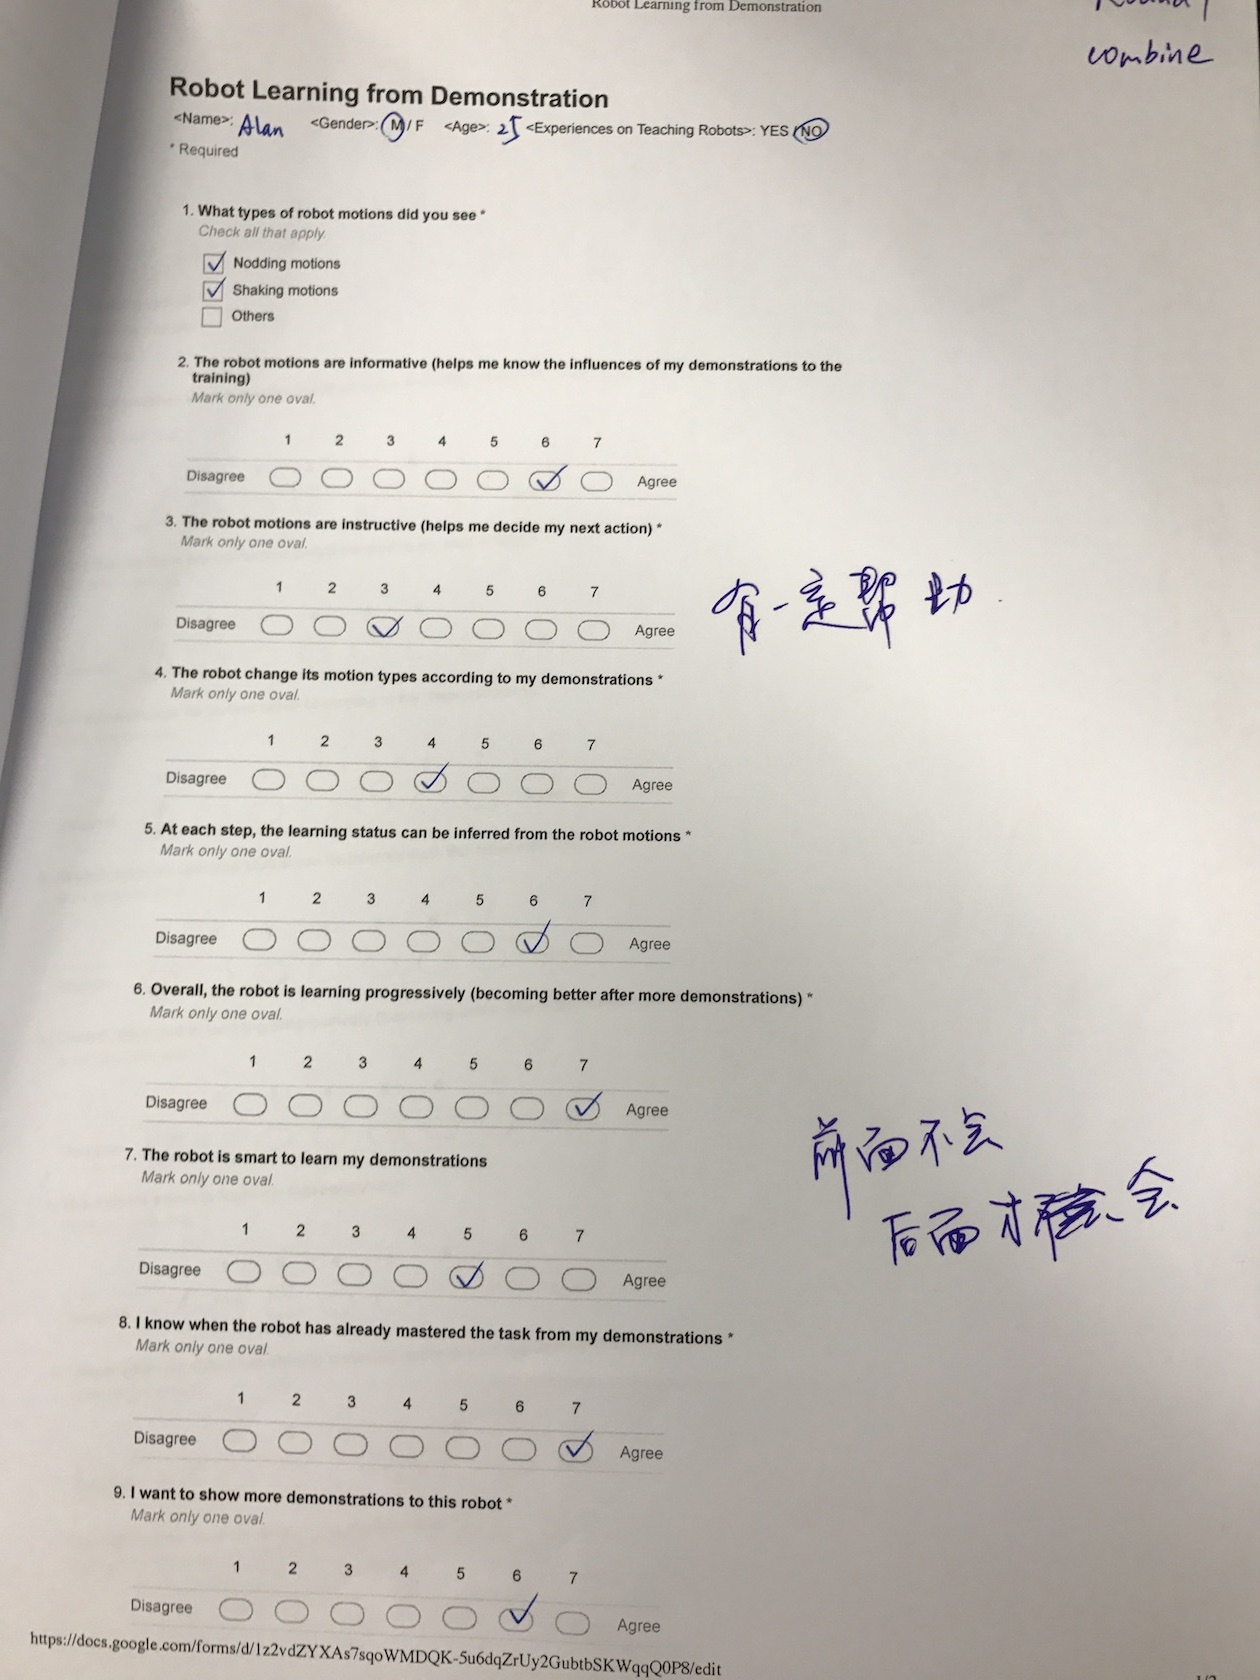 Robot Learning from Demonstration
Round 1
combine
Robot Learning from Demonstration
<Name>: Alan <Gender>: M / F <Age>: 25 <Experiences on Teaching Robots>: YES / NO
* Required
1. What types of robot motions did you see *
Check all that apply.
Nodding motions
Shaking motions
Others
2. The robot motions are informative (helps me know the influences of my demonstrations to the
training)
Mark only one oval.
1 2 3 4 5 6 7
Disagree Agree
3. The robot motions are instructive (helps me decide my next action) *
Mark only one oval.
1 2 3 4 5 6 7
Disagree Agree
有一定帮助.
4. The robot change its motion types according to my demonstrations *
Mark only one oval.
1 2 3 4 5 6 7
Disagree Agree
5. At each step, the learning status can be inferred from the robot motions *
Mark only one oval.
1 2 3 4 5 6 7
Disagree Agree
6. Overall, the robot is learning progressively (becoming better after more demonstrations) *
Mark only one oval.
1 2 3 4 5 6 7
Disagree Agree
前面不会
后面才会
7. The robot is smart to learn my demonstrations
Mark only one oval.
1 2 3 4 5 6 7
Disagree Agree
8. I know when the robot has already mastered the task from my demonstrations *
Mark only one oval.
1 2 3 4 5 6 7
Disagree Agree
9. I want to show more demonstrations to this robot *
Mark only one oval.
1 2 3 4 5 6 7
Disagree Agree
https://docs.google.com/forms/d/1z2vdZYXAs7sqoWMDQK-5u6dqZrUy2GubtbSKWqqQ0P8/edit